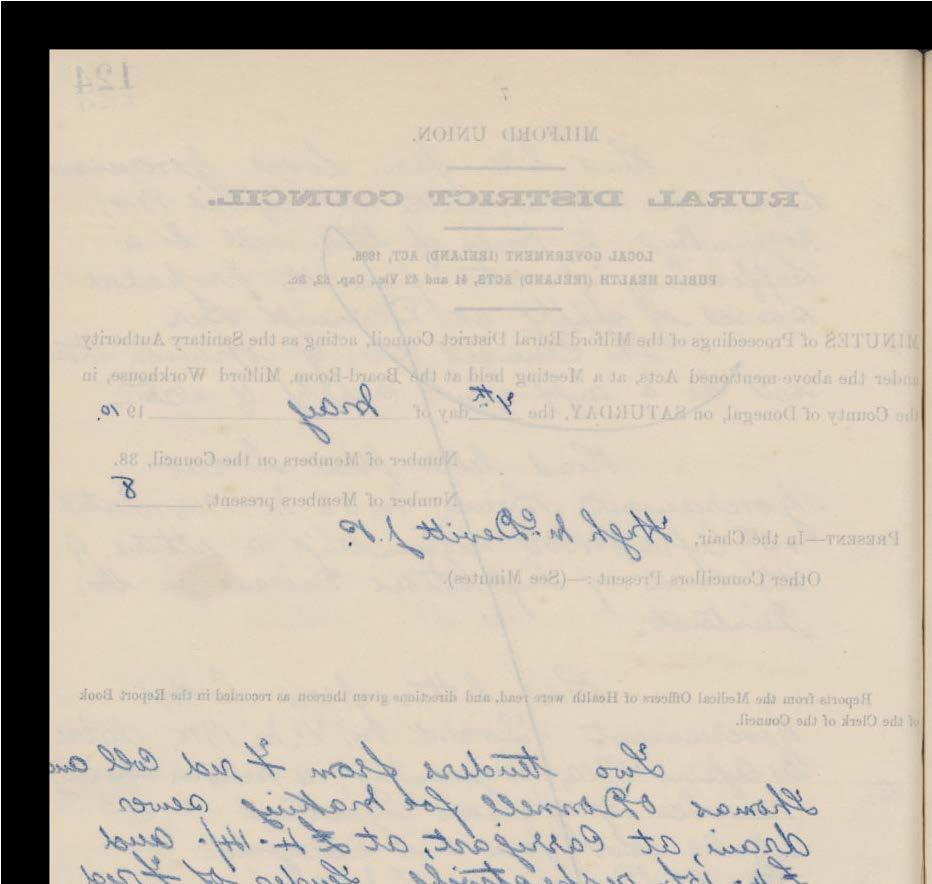 124
7
MILFORD UNION.
RURAL DISTRICT COUNCIL.
LOCAL GOVERNMENT (IRELAND) ACT, 1898.
PUBLIC HEALTH (IRELAND) ACTS, 41 and 42 Vic., Cap. 52, &c.
MINUTES of Proceedings of the Milford Rural District Council, acting as the Sanitary Authority
under the above-mentioned Acts, at a Meeting held at the Board-Room, Milford Workhouse, in
the County of Donegal, on SATURDAY, the 7th day of May 1910.
Number of Members on the Council, 38.
Number of Members present, 8
PRESENT—In the Chair, Hugh McDevitt J.P.
Other Councillors Present :—(See Minutes).
Reports from the Medical Officers of Health were read, and directions given thereon as recorded in the Report Book
of the Clerk of the Council.
Two tenders from Fred Coll and
Thomas O'Donnell for making sewer
drain, at Carrigart, at £4.14. and
respectively Tender of Fred